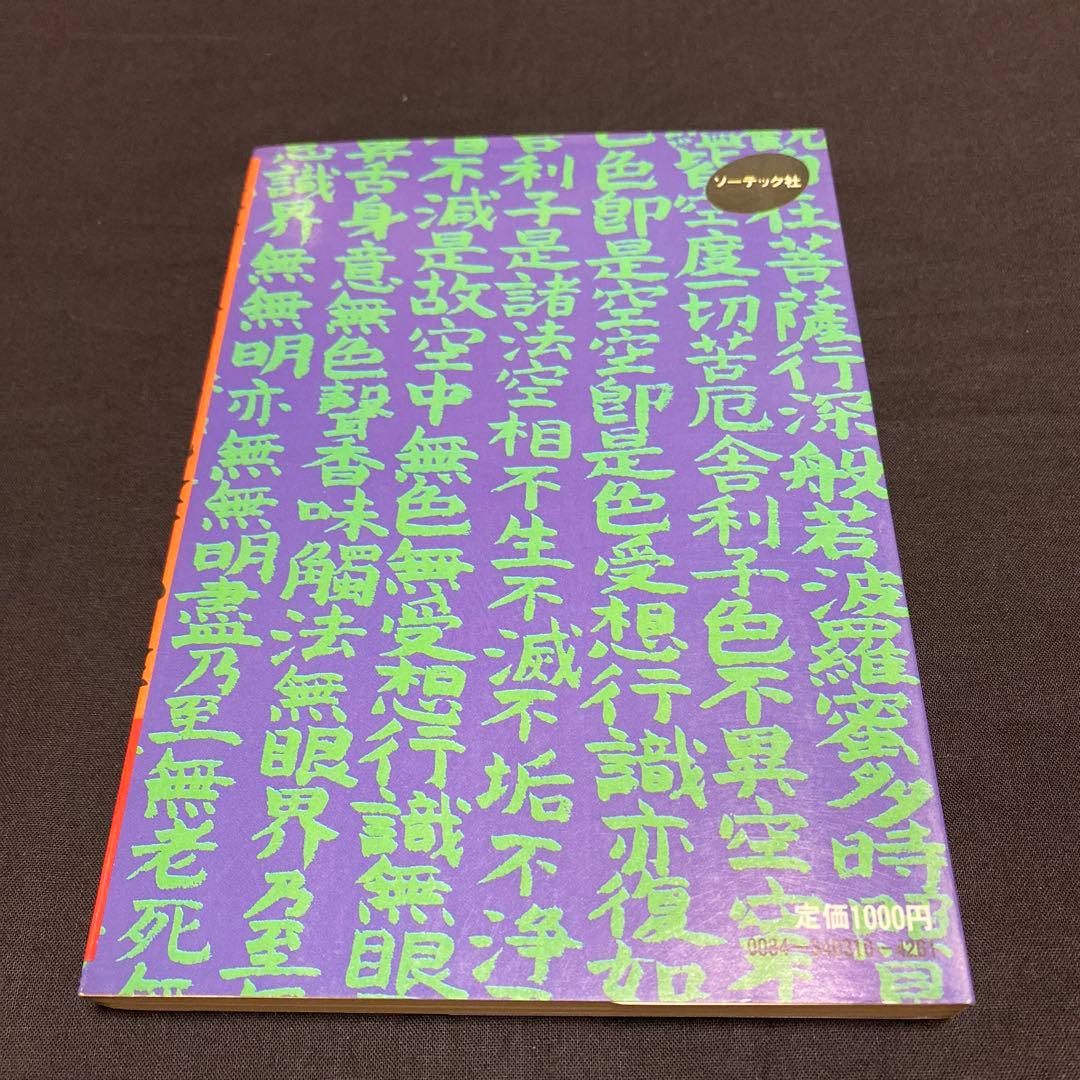 ソーテック社
観自在菩薩行深般若波羅蜜多時照見
皆空度一切苦厄舎利子色不異空空不
色色即是空空即是色受想行識亦復如
舎利子是諸法空相不生不滅不垢不浄
不減是故空中無色無受想行識無眼
舌身意無色聲香味觸法無眼界乃至無
意識界無無明亦無無明盡乃至無老死無
定価1000円